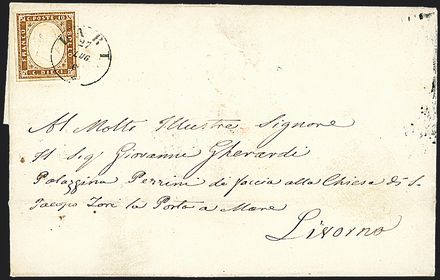 C. POSTE 10
FRANCO
C. DIECI
BARI
27
LUG
Al Molto Illustre Signore
Il Sig Giovanni Gherardi
Palazzina Perrini di faccia alla Chiesa di S.
Jacopo fori la Porta a Mare
Livorno